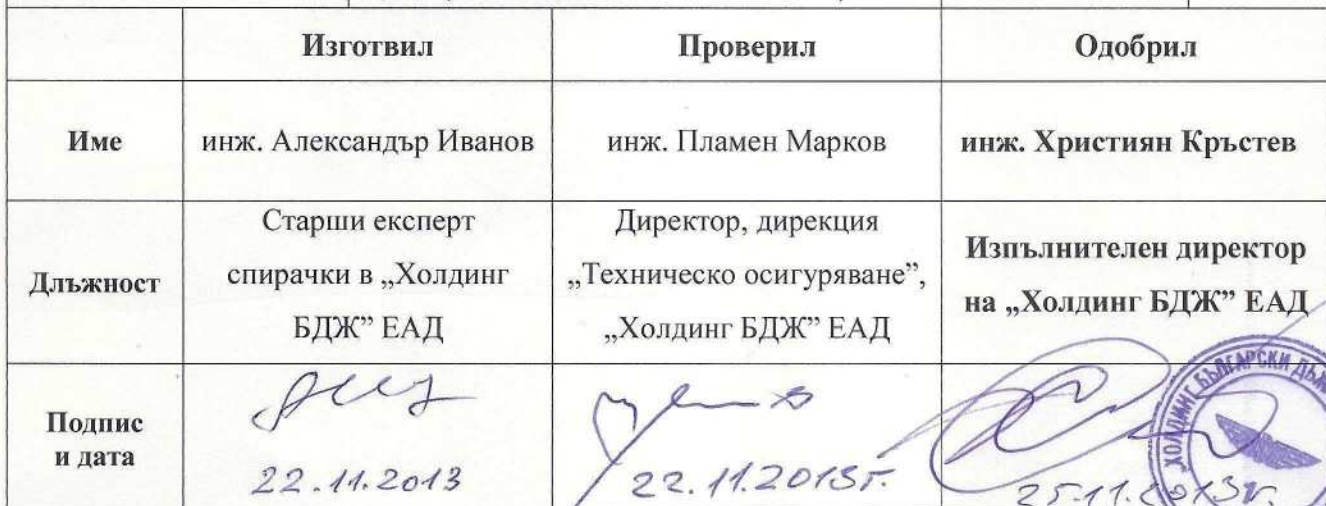 Изготвил Проверил Одобрил
Име инж. Александър Иванов инж. Пламен Марков инж. Християн Кръстев
Длъжност
Старши експерт
спирачки в „Холдинг
БДЖ” ЕАД
Директор, дирекция
„Техническо осигуряване”,
„Холдинг БДЖ” ЕАД
Изпълнителен директор
на „Холдинг БДЖ” ЕАД
Подпис
и дата
22.11.2013
22.11.2013г.
25.11.2013г.
ХОЛДИНГ БЪЛГАРСКИ